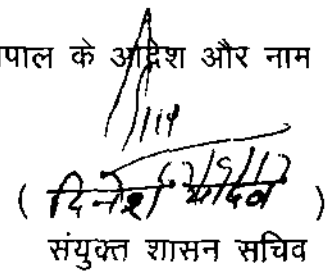 पाल के आदेश और नाम
( दिनेश यादव )
संयुक्त शासन सचिव